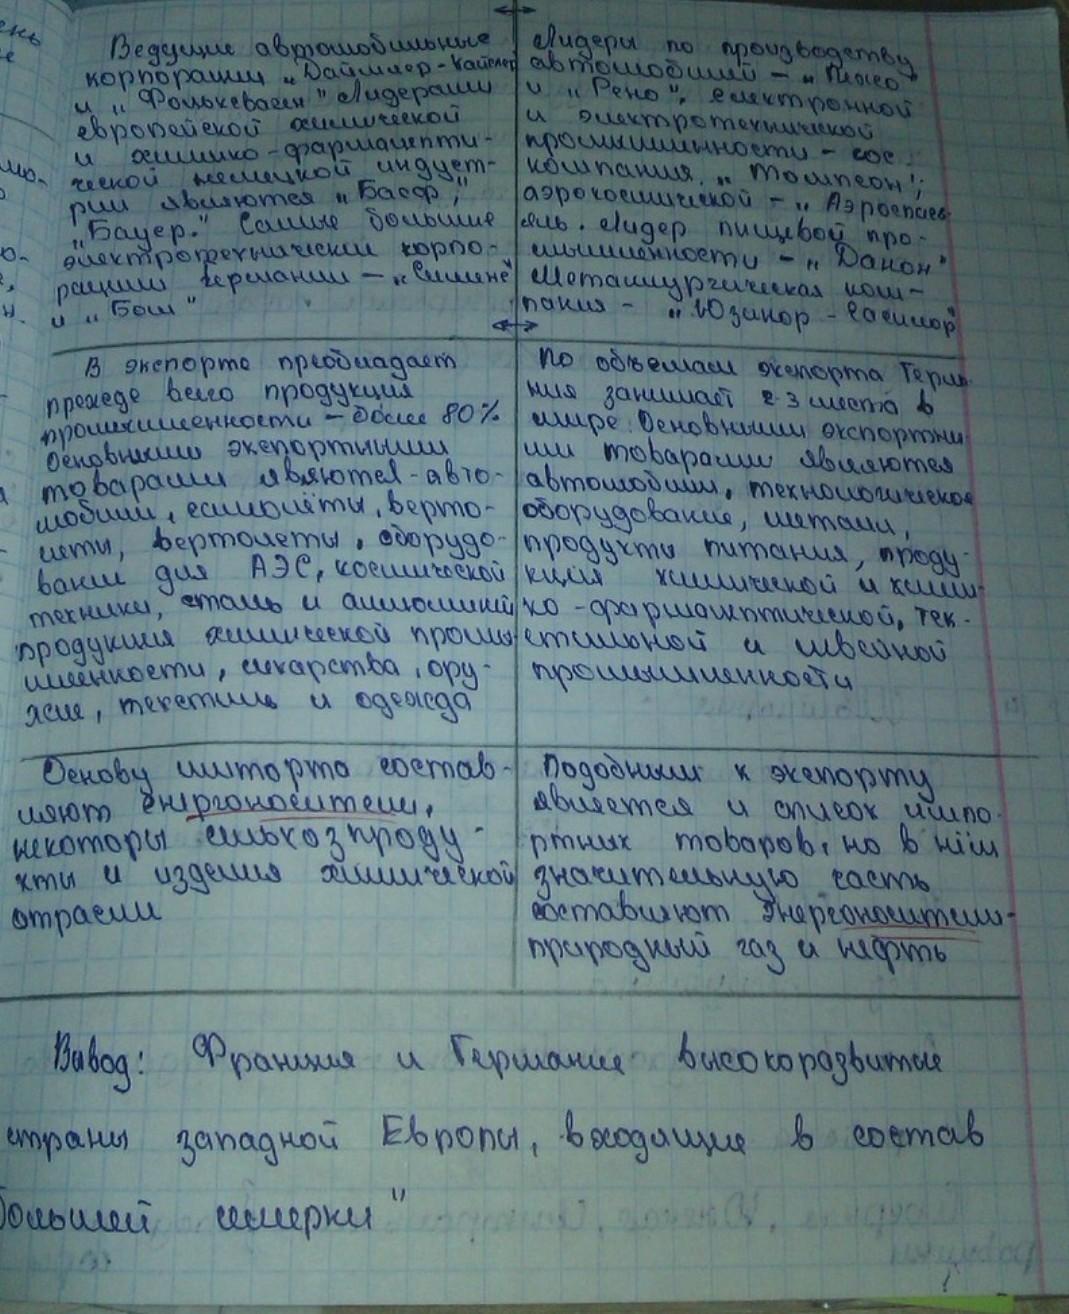 Ведущие автомобильные
корпорации „Даймлер-Кайслер
и „Фольксваген" Лидерами
европейской химической
и химико-фармацевти-
ческой немецкой индуст-
рии являются „Басф",
„Бауер." Самые большие
электротехнически корпо-
рации Германии – „Сименс"
и „Бош"
Лидеры по производству
автомобилей – „Пежо"
и „Рено", електронной
и электротехнической
промышленности –
компания „Томпсон";
аэрокосмической – „Аэроспас
яль. Лидер пищевой про-
мышленности – „Данон"
Металлургическая ком-
пания – „Юзинор - Сасилор"
В экспорте преобладает
прежде всего продукция
промышленности – более 80%
Основными экспортными
товарами являются - авто-
мобили, самолёты, верто-
леты, вертолеты, оборудо-
вание для АЭС, космической
техники, сталь и алюминий
продукция химической промы
шленности, лекарства, ору-
жие, текстиль и одежда
По объемам экспорта Герма
ния занимает 2-3 места в
мире. Основными экспортны
ми товарами являются
автомобили, технологическое
оборудование, металл,
продукты питания, проду-
кция химической и хими-
ко-фармацептической, тек-
стильной и швейной
промышленности
Основу импорта состав-
ляют энергоносители,
некоторы сельхозпроду-
кты и изделия химической
отрасли
Подобным к экспорту
является и список импо-
ртных товаров, но в нём
значительную часть
составляют энергоносители-
природный газ и нефть
Вывод: Франция и Германие высокоразвитые
страны западной Европы, входящие в состав
большей шмерки"